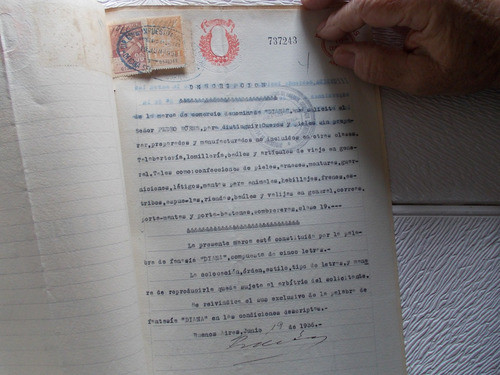 737243
DESCRIPCION
de la marca de comercio denominada "DIANA", que solicita el
Señor PEDRO para distinguir: Cueros y pieles sin prepa-
rar, preparados y manufacturados no incluídos en otras clases.
Talabartería, lomillería, baúles y artículos de viaje en gene-
ral. Tales como: confecciones de pieles, arneses, monturas, guar-
niciones, látigos, mantas para animales, hebillajes, frenos, es-
tribos, espuelas, riendas, baúles y valijas en general, correas,
porta-mantas y porta-bastones, sombrereras, clase 19.---
La presente marca está constituída por la pala-
bra de fantasía "DIANA", compuesta de cinco letras.-
La colocación, órden, estilo, tipo de letras, y mane
ra de reproducirla queda sujeta al arbitrio del solicitante.
Se reivindica el uso exclusivo de la palabra de
fantasía "DIANA" en las condiciones descriptas.-
Buenos Aires, Junio 19 de 1926.-